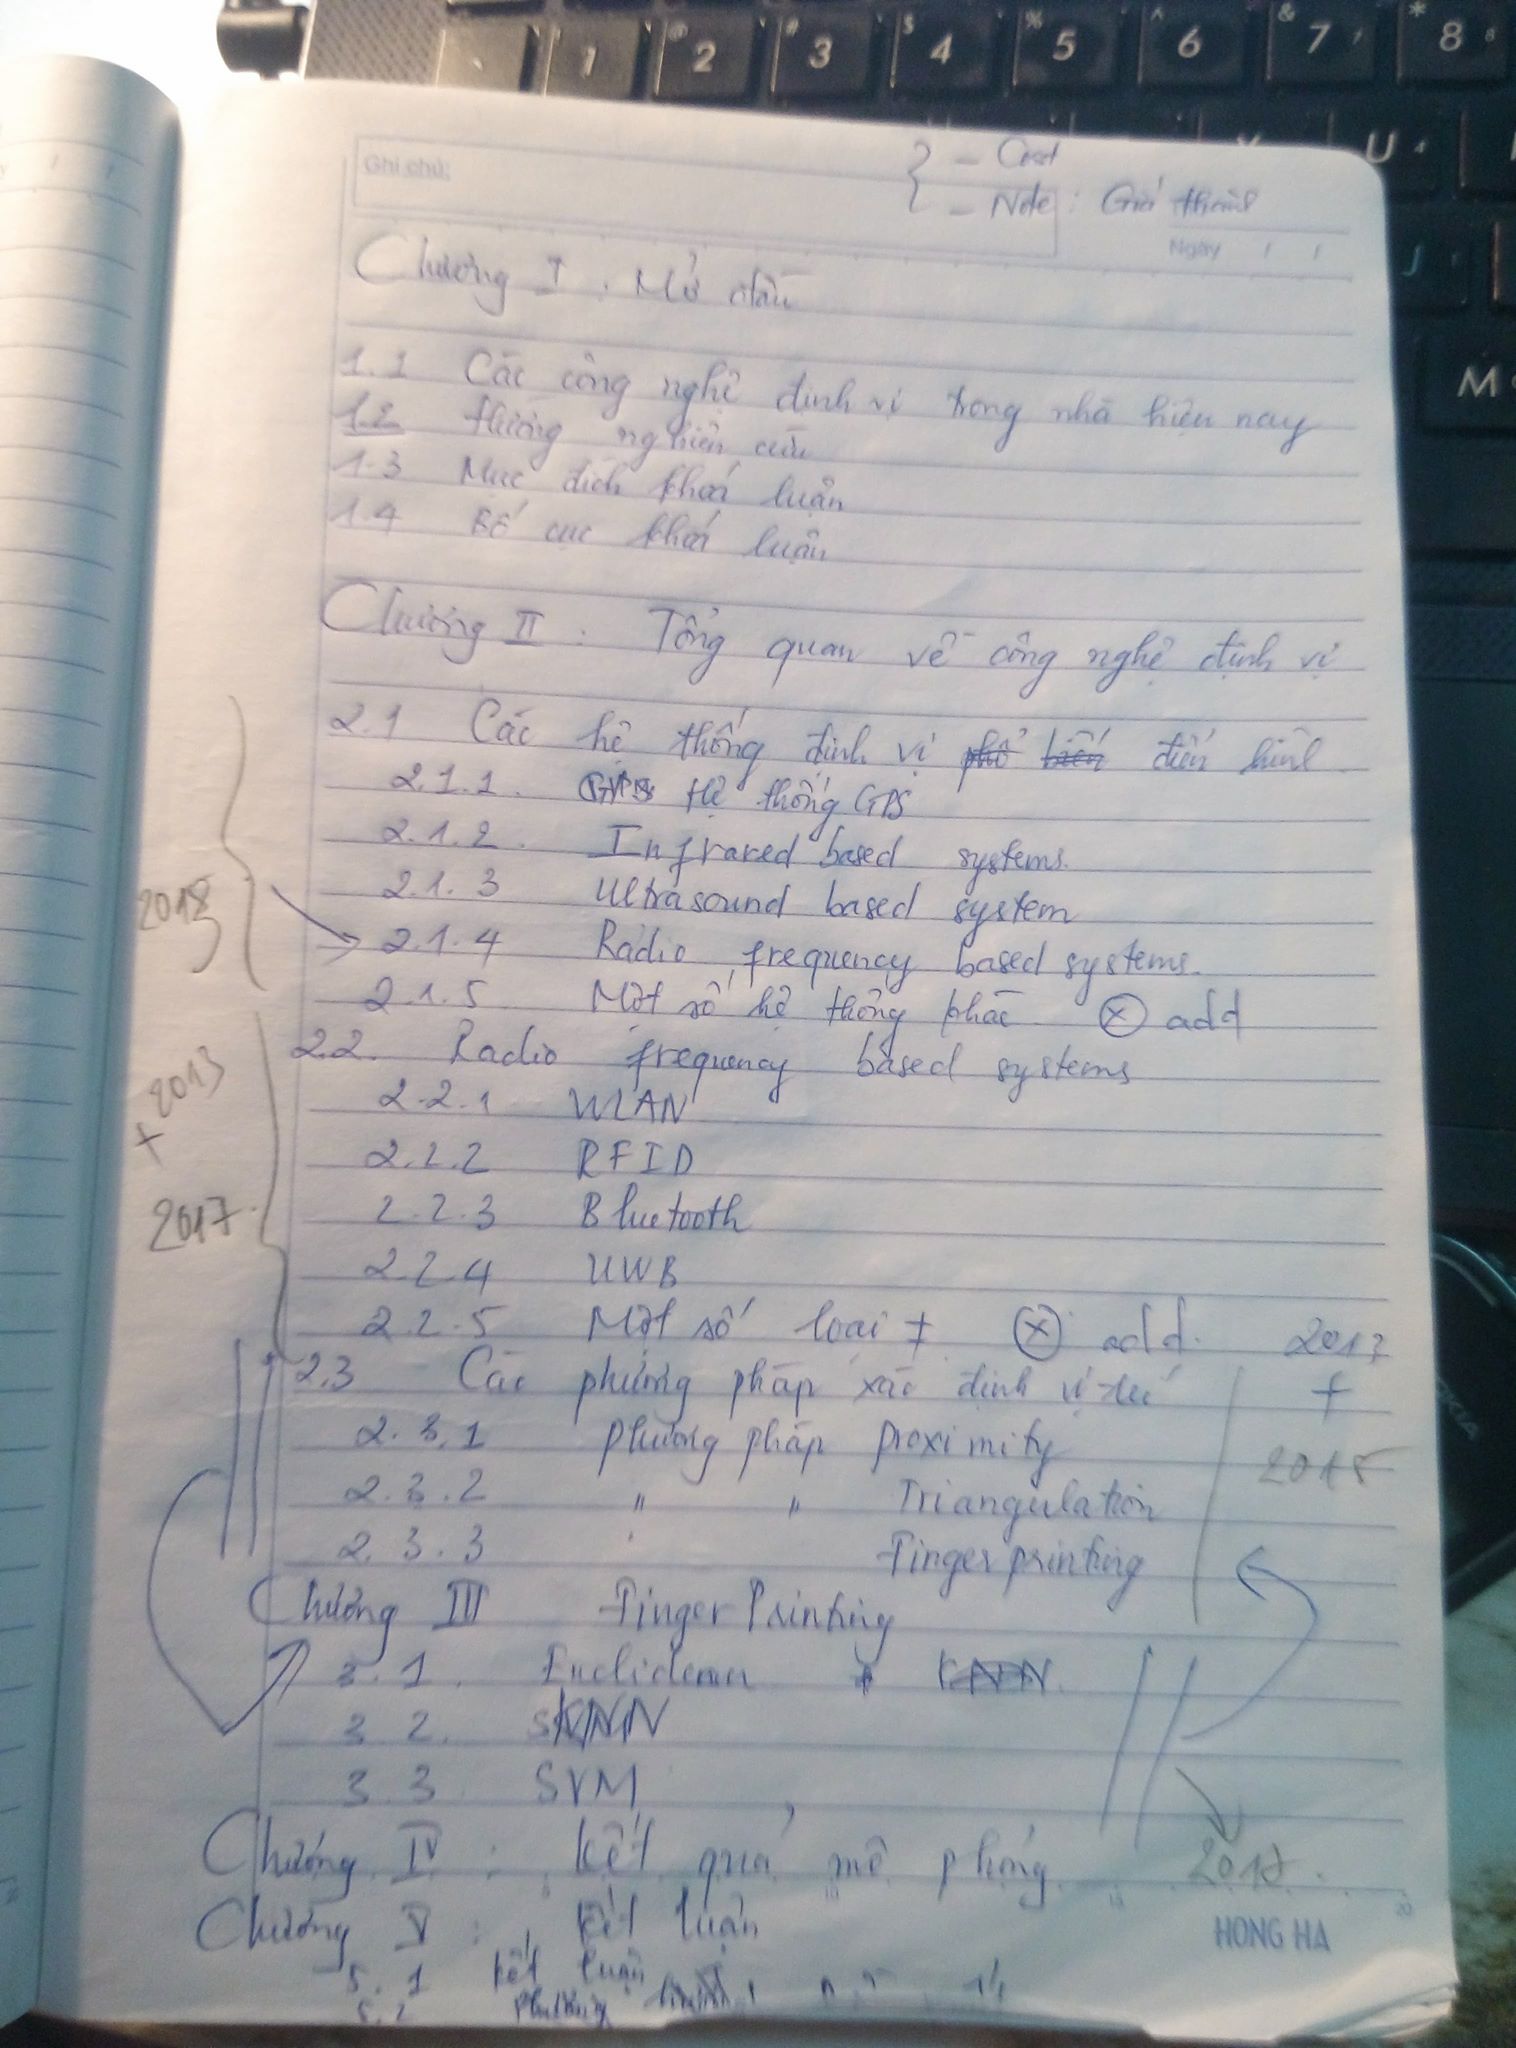 Ghi chú:
{ - Cost
- Note: Giá thành
Ngày / /
Chương I. Mở đầu
1.1 Các công nghệ định vị trong nhà hiện nay
1.2 Hướng nghiên cứu
1.3 Mục đích khoá luận
1.4 Bố cục khoá luận
Chương II: Tổng quan về công nghệ định vị
2.1 Các hệ thống định vị phổ biến điển hình
2.1.1. GPS Hệ thống GPS
2.1.2. Infrared based systems.
2.1.3 Ultrasound based system
2018
2.1.4 Radio frequency based systems.
2.1.5 Một số hệ thống khác ⊗ add
2.2. Radio frequency based systems
2013
2.2.1 WLAN
+
2.2.2 RFID
2017
2.2.3 Bluetooth
2.2.4 UWB
2.2.5 Một số loại ≠ ⊗ add. 2013
2.3 Các phương pháp xác định vị trí +
2.3.1 phương pháp proximity
2.3.2 " " Triangulation
2.3.3 Finger printing
Chương III Finger Printing
3.1. Euclidean KNN
3.2. SKNN
3.3 SVM
Chương IV: Kết quả mô phỏng
Chương V: Kết luận
HONG HA
5.1 Kết luận
5.2 Phương